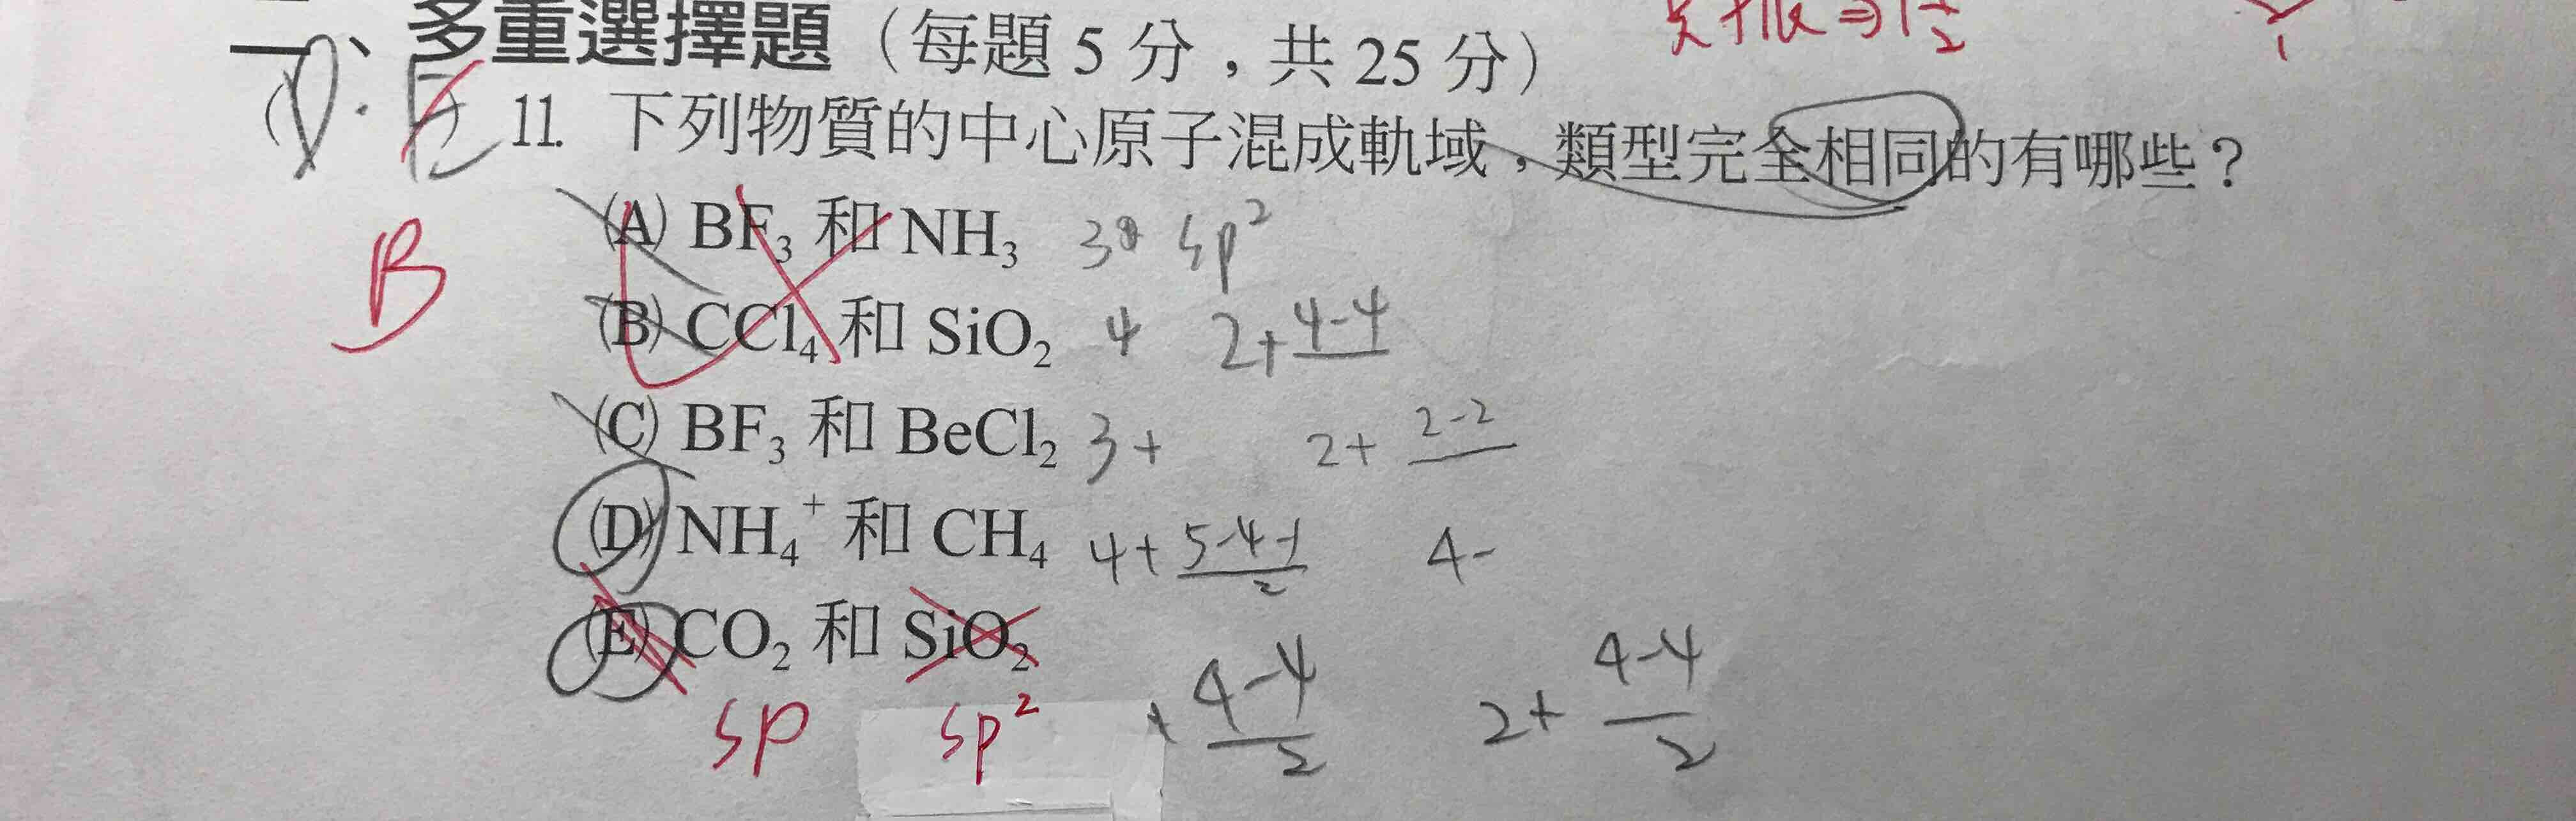 二、多重選擇題（每題 5 分，共 25 分）
D. E 11. 下列物質的中心原子混成軌域，類型完全相同的有哪些？
B
(A) BF₃ 和 NH₃ 3 sp²
(B) CCl₄ 和 SiO₂ 4 2+4-4
(C) BF₃ 和 BeCl₂ 3+ 2+2-2
(D) NH₄⁺ 和 CH₄ 4+5-4-1/2 4-
(E) CO₂ 和 SiO₂ +4-4/2 2+4-4/2
sp sp²